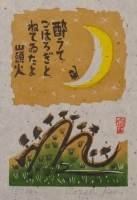 酔うて
こほろぎと
ねてゐたよ
山頭火